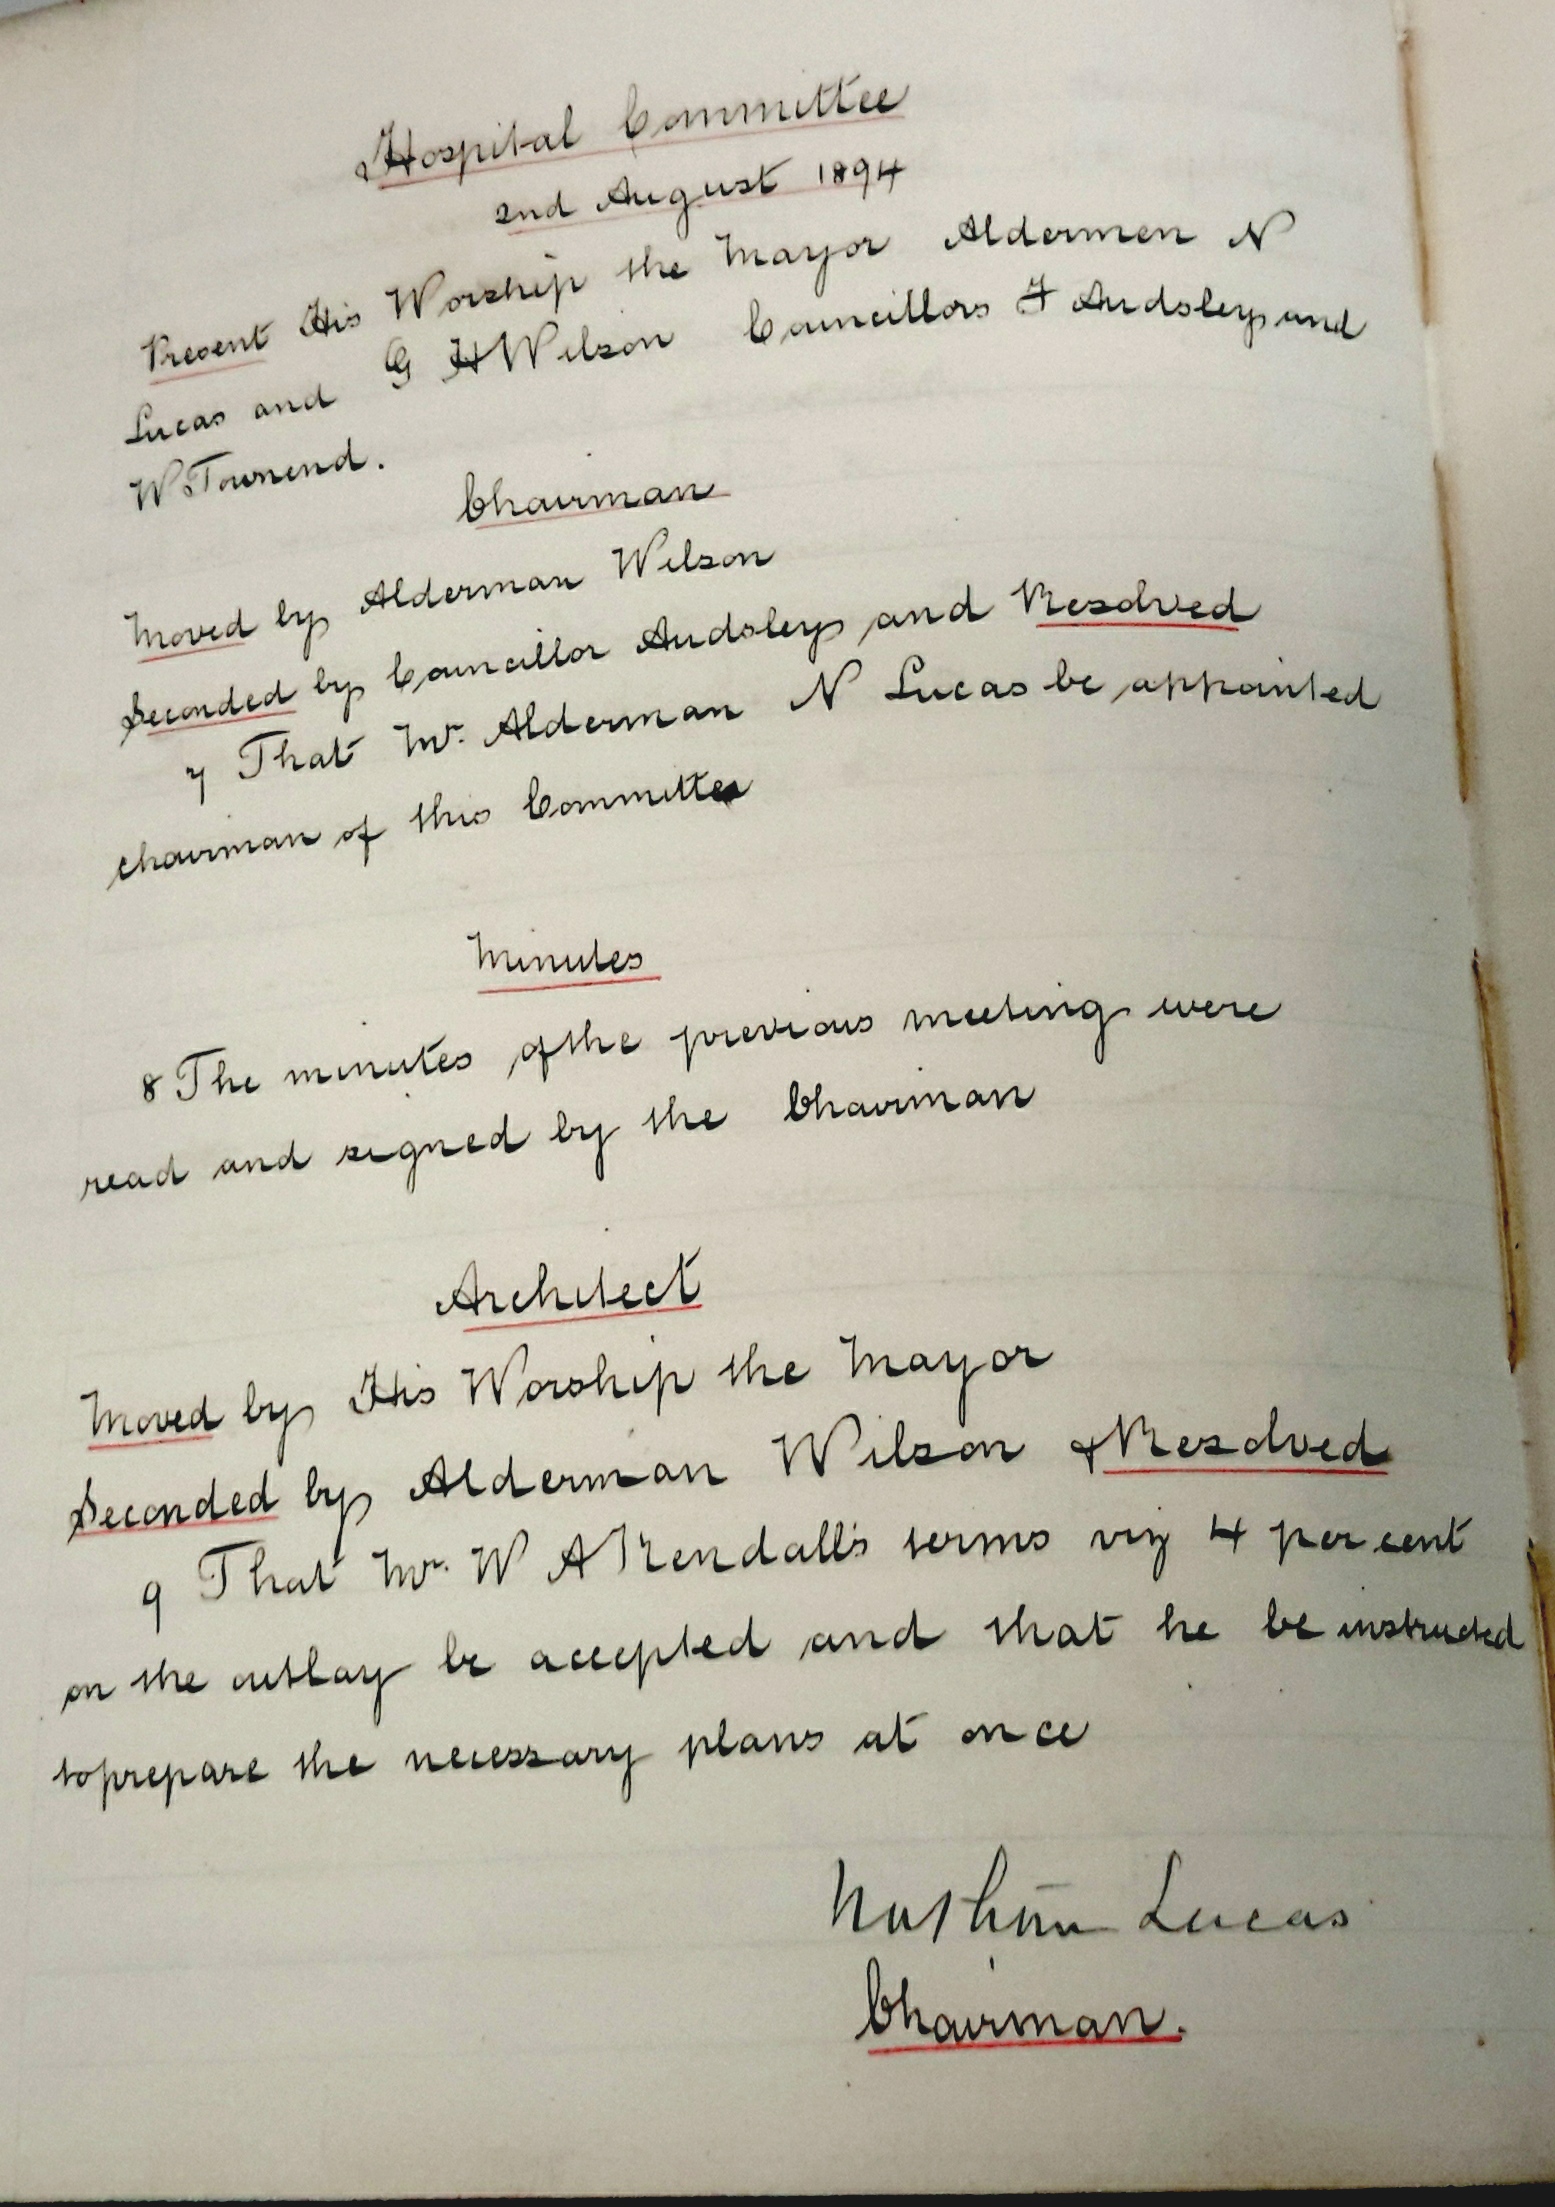 Hospital Committee
2nd August 1894
Present His Worship the Mayor Aldermen N
Lucas and G H Wilson Councillors F Audsley and
W Townend.
Chairman
Moved by Alderman Wilson
Seconded by Councillor Audsley and Resolved
7 That Mr. Alderman N Lucas be appointed
chairman of this Committee
Minutes
8 The minutes of the previous meeting were
read and signed by the Chairman
Architect
Moved by His Worship the Mayor
Seconded by Alderman Wilson & Resolved
9 That Mr. W A Kendall's terms viz 4 per cent
on the outlay be accepted and that he be instructed
to prepare the necessary plans at once
Nathan Lucas
Chairman.